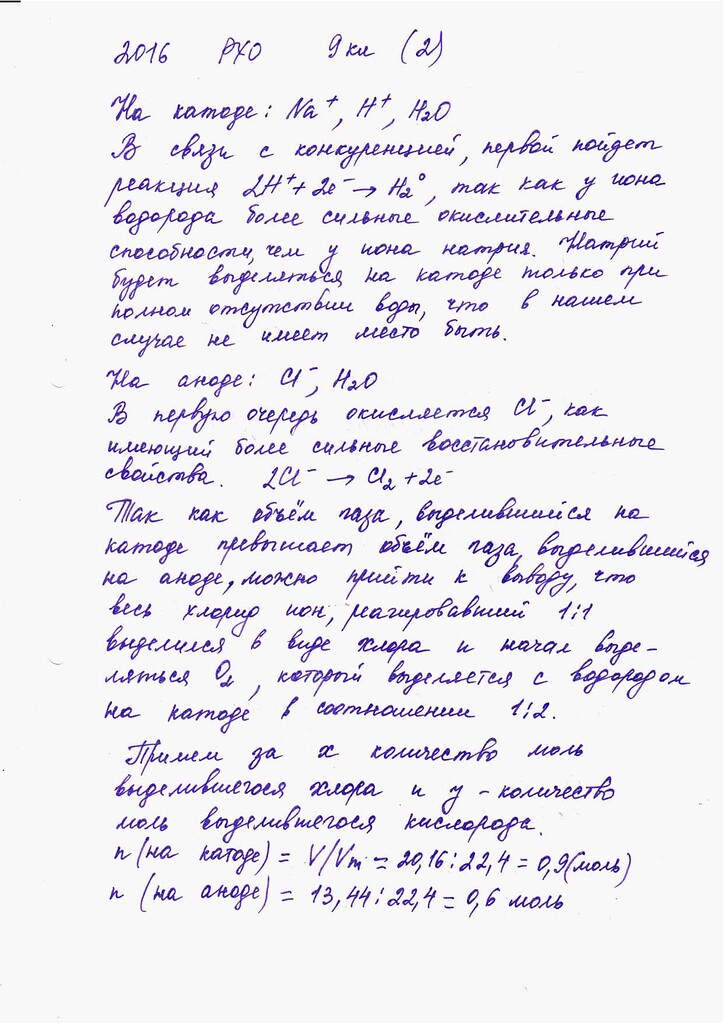 2016 РХО 9 кл (2)
На катоде: Na⁺, H⁺, H₂O
В связи с конкуренцией, первой пойдет
реакция 2H⁺ + 2e⁻ → H₂⁰, так как у иона
водорода более сильные окислительные
способности, чем у иона натрия. Натрий
будет выделяться на катоде только при
полном отсутствии воды, что в нашем
случае не имеет место быть.
На аноде: Cl⁻, H₂O
В первую очередь окисляется Cl⁻, как
имеющий более сильные восстановительные
свойства. 2Cl⁻ → Cl₂ + 2e⁻
Так как объём газа, выделившийся на
катоде превышает объём газа, выделившийся
на аноде, можно прийти к выводу, что
весь хлорид ион, реагировавший 1:1
выделился в виде хлора и начал выде-
ляться O₂, который выделяется с водородом
на катоде в соотношении 1:2.
Примем за x количество моль
выделившегося хлора и y - количество
моль выделившегося кислорода.
n (на катоде) = V/Vm = 20,16:22,4 = 0,9(моль)
n (на аноде) = 13,44:22,4 = 0,6 моль